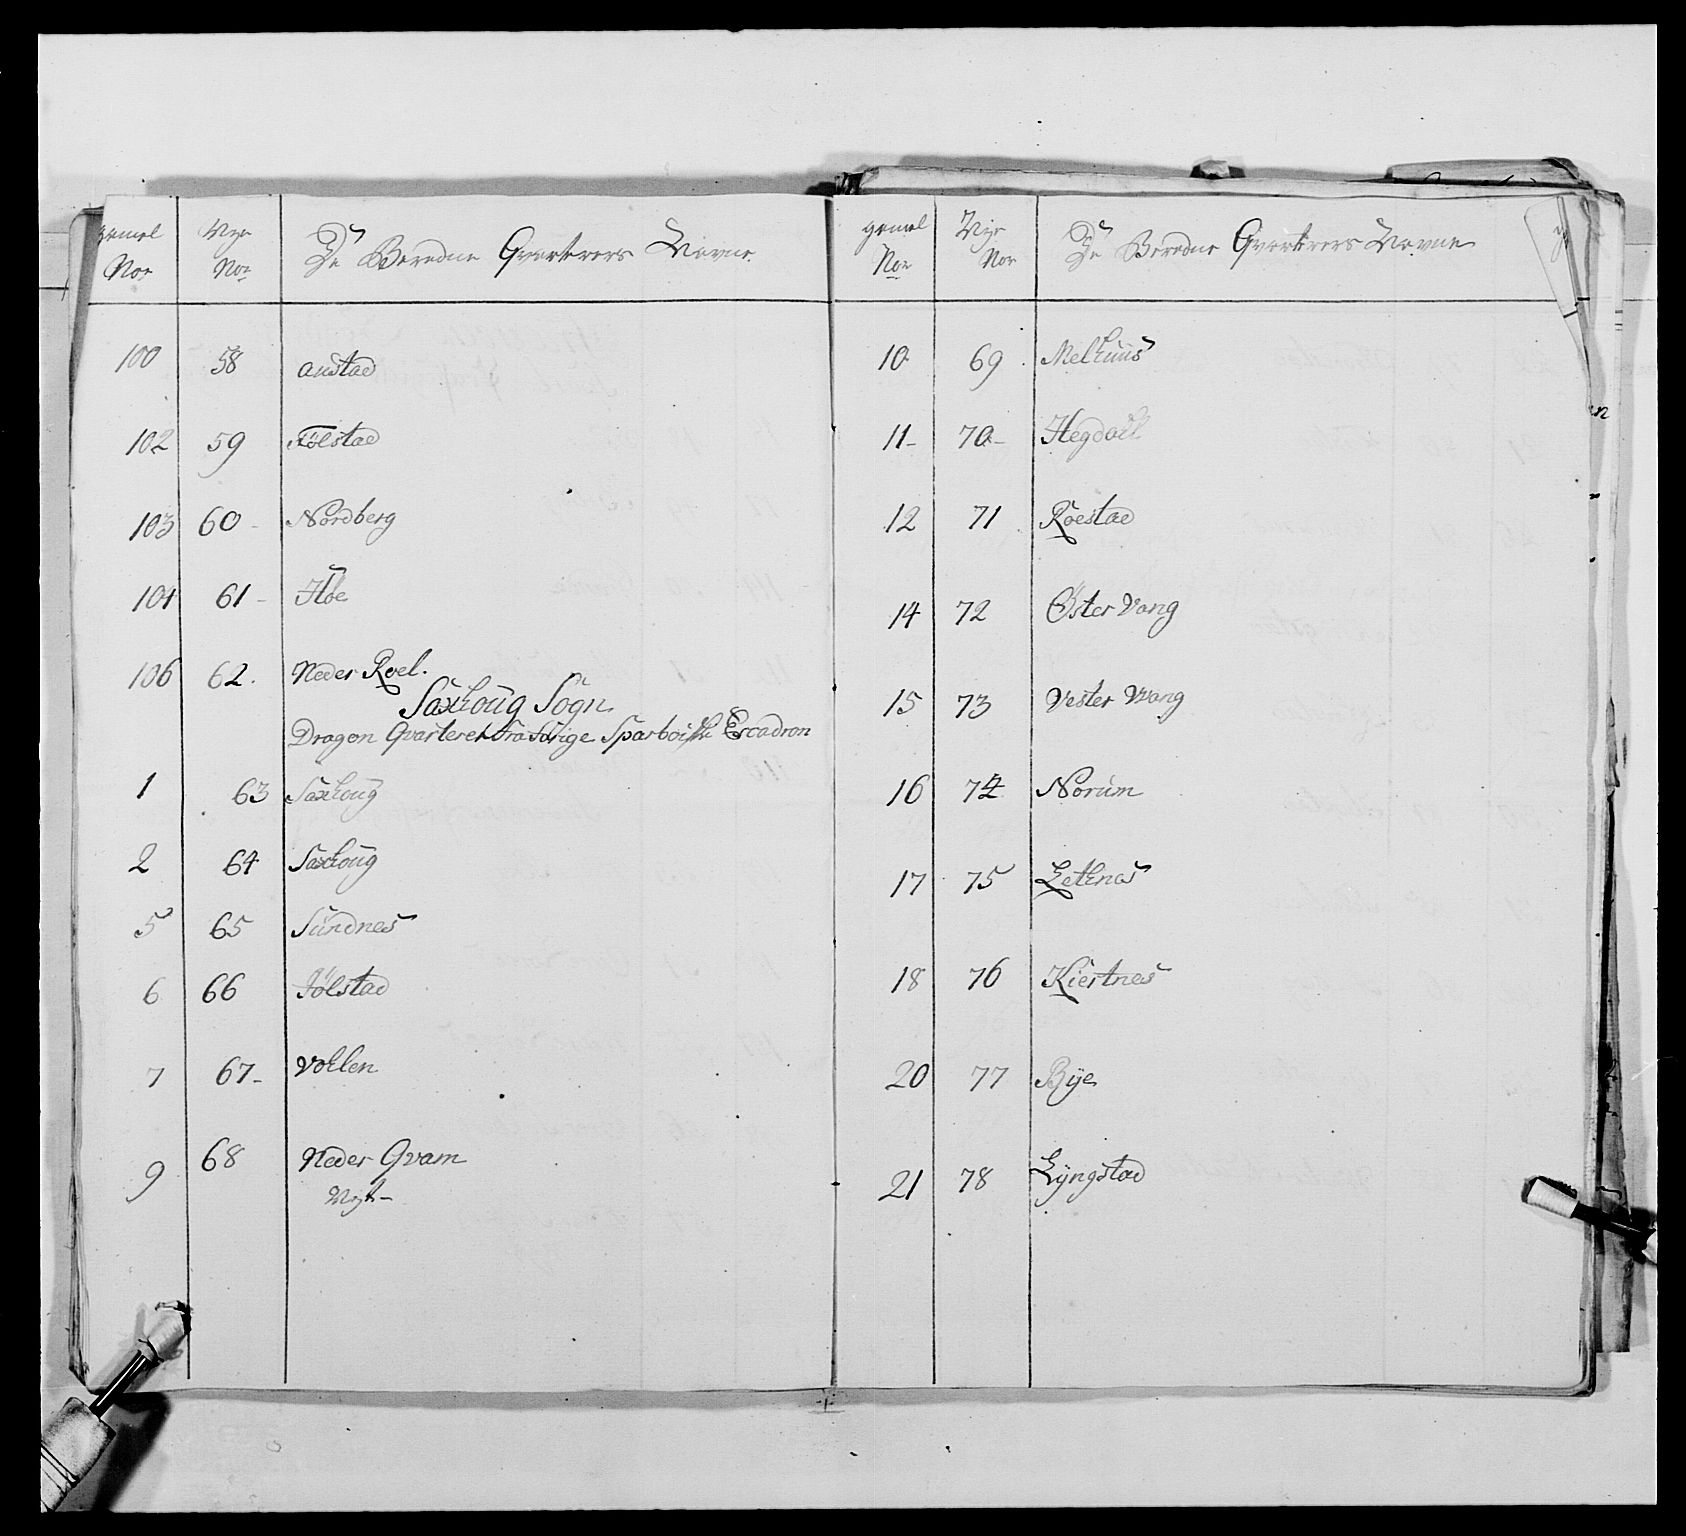 gemel Nye De Beredne Qvarterers Navne
Nor Nor
100 58 Austad
102 59 Følstad
103 60 - Nordberg
104 61 - Høe
106 62. Neder Roel.
Saxhoug Sogn
Dragon Qvarteret fra forige Sparboiske Escadron
1 63 Saxhoug
2 64 Saxhoug
5 65 Sundnes
6 66 Jølstad
7 67- Vollen
9 68 Neder Qvam
gemel Nye De Beredne Qvarterers Navne
Nor Nor
10 69 Melhuus
11- 70- Hegdall
12 71 Roestad
14 72 Øster Vang
15 73 Vester Vang
16 74 Norum
17 75 Lethnes
18 76 Kiertnes
20 77 Bye
21 78 Lyngstad